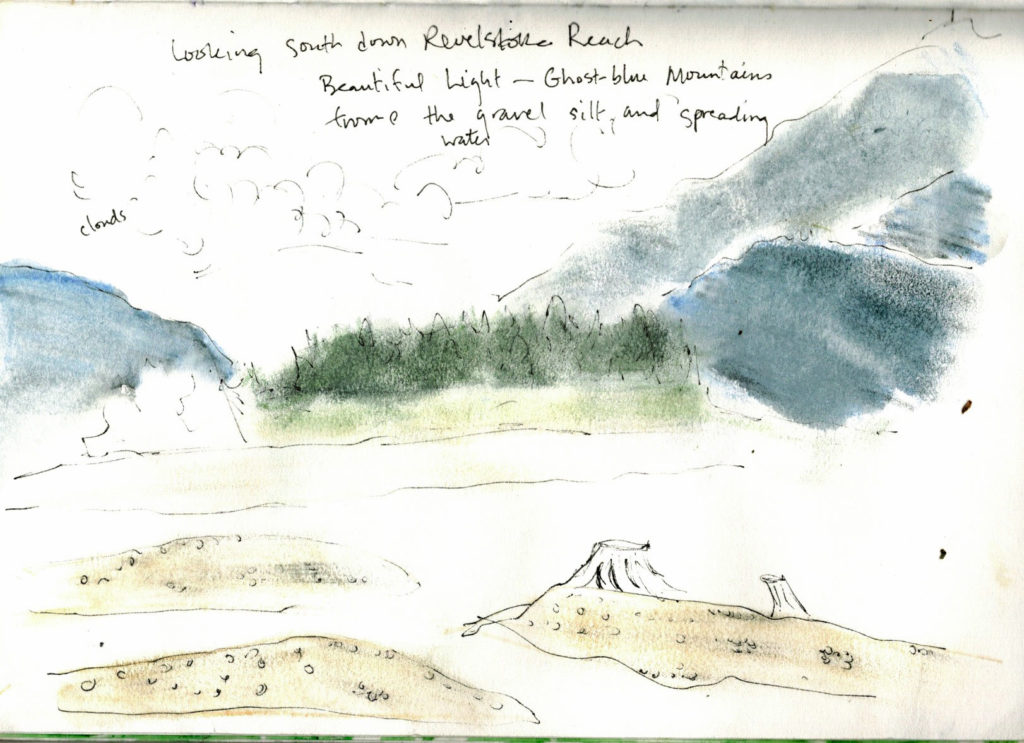 Looking South down Revelstoke Reach
Beautiful Light – Ghost-blue Mountains
the gravel silt, and spreading
water
clouds